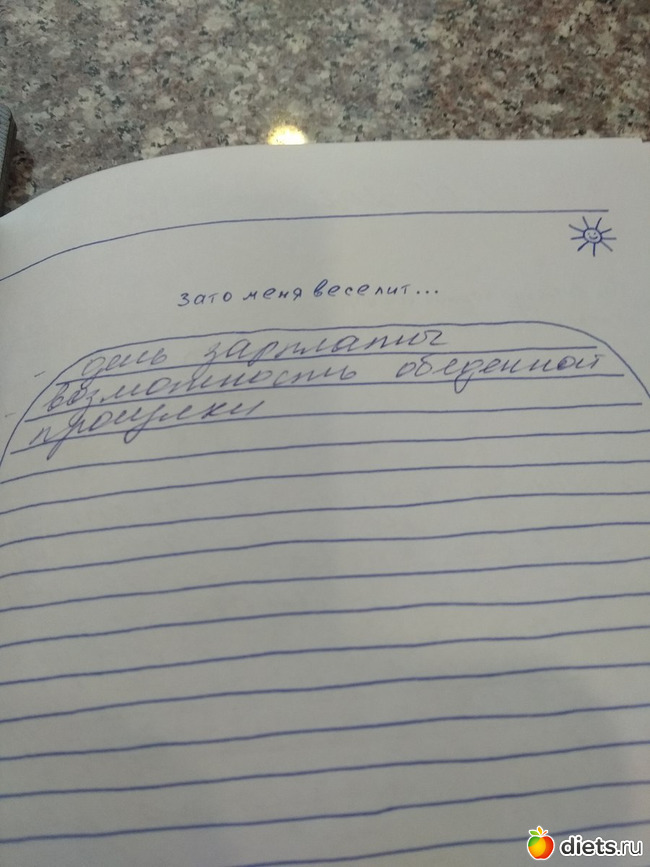 зато меня веселит...
- день зарплаты
- возможность обеденной
прогулки
diets.ru